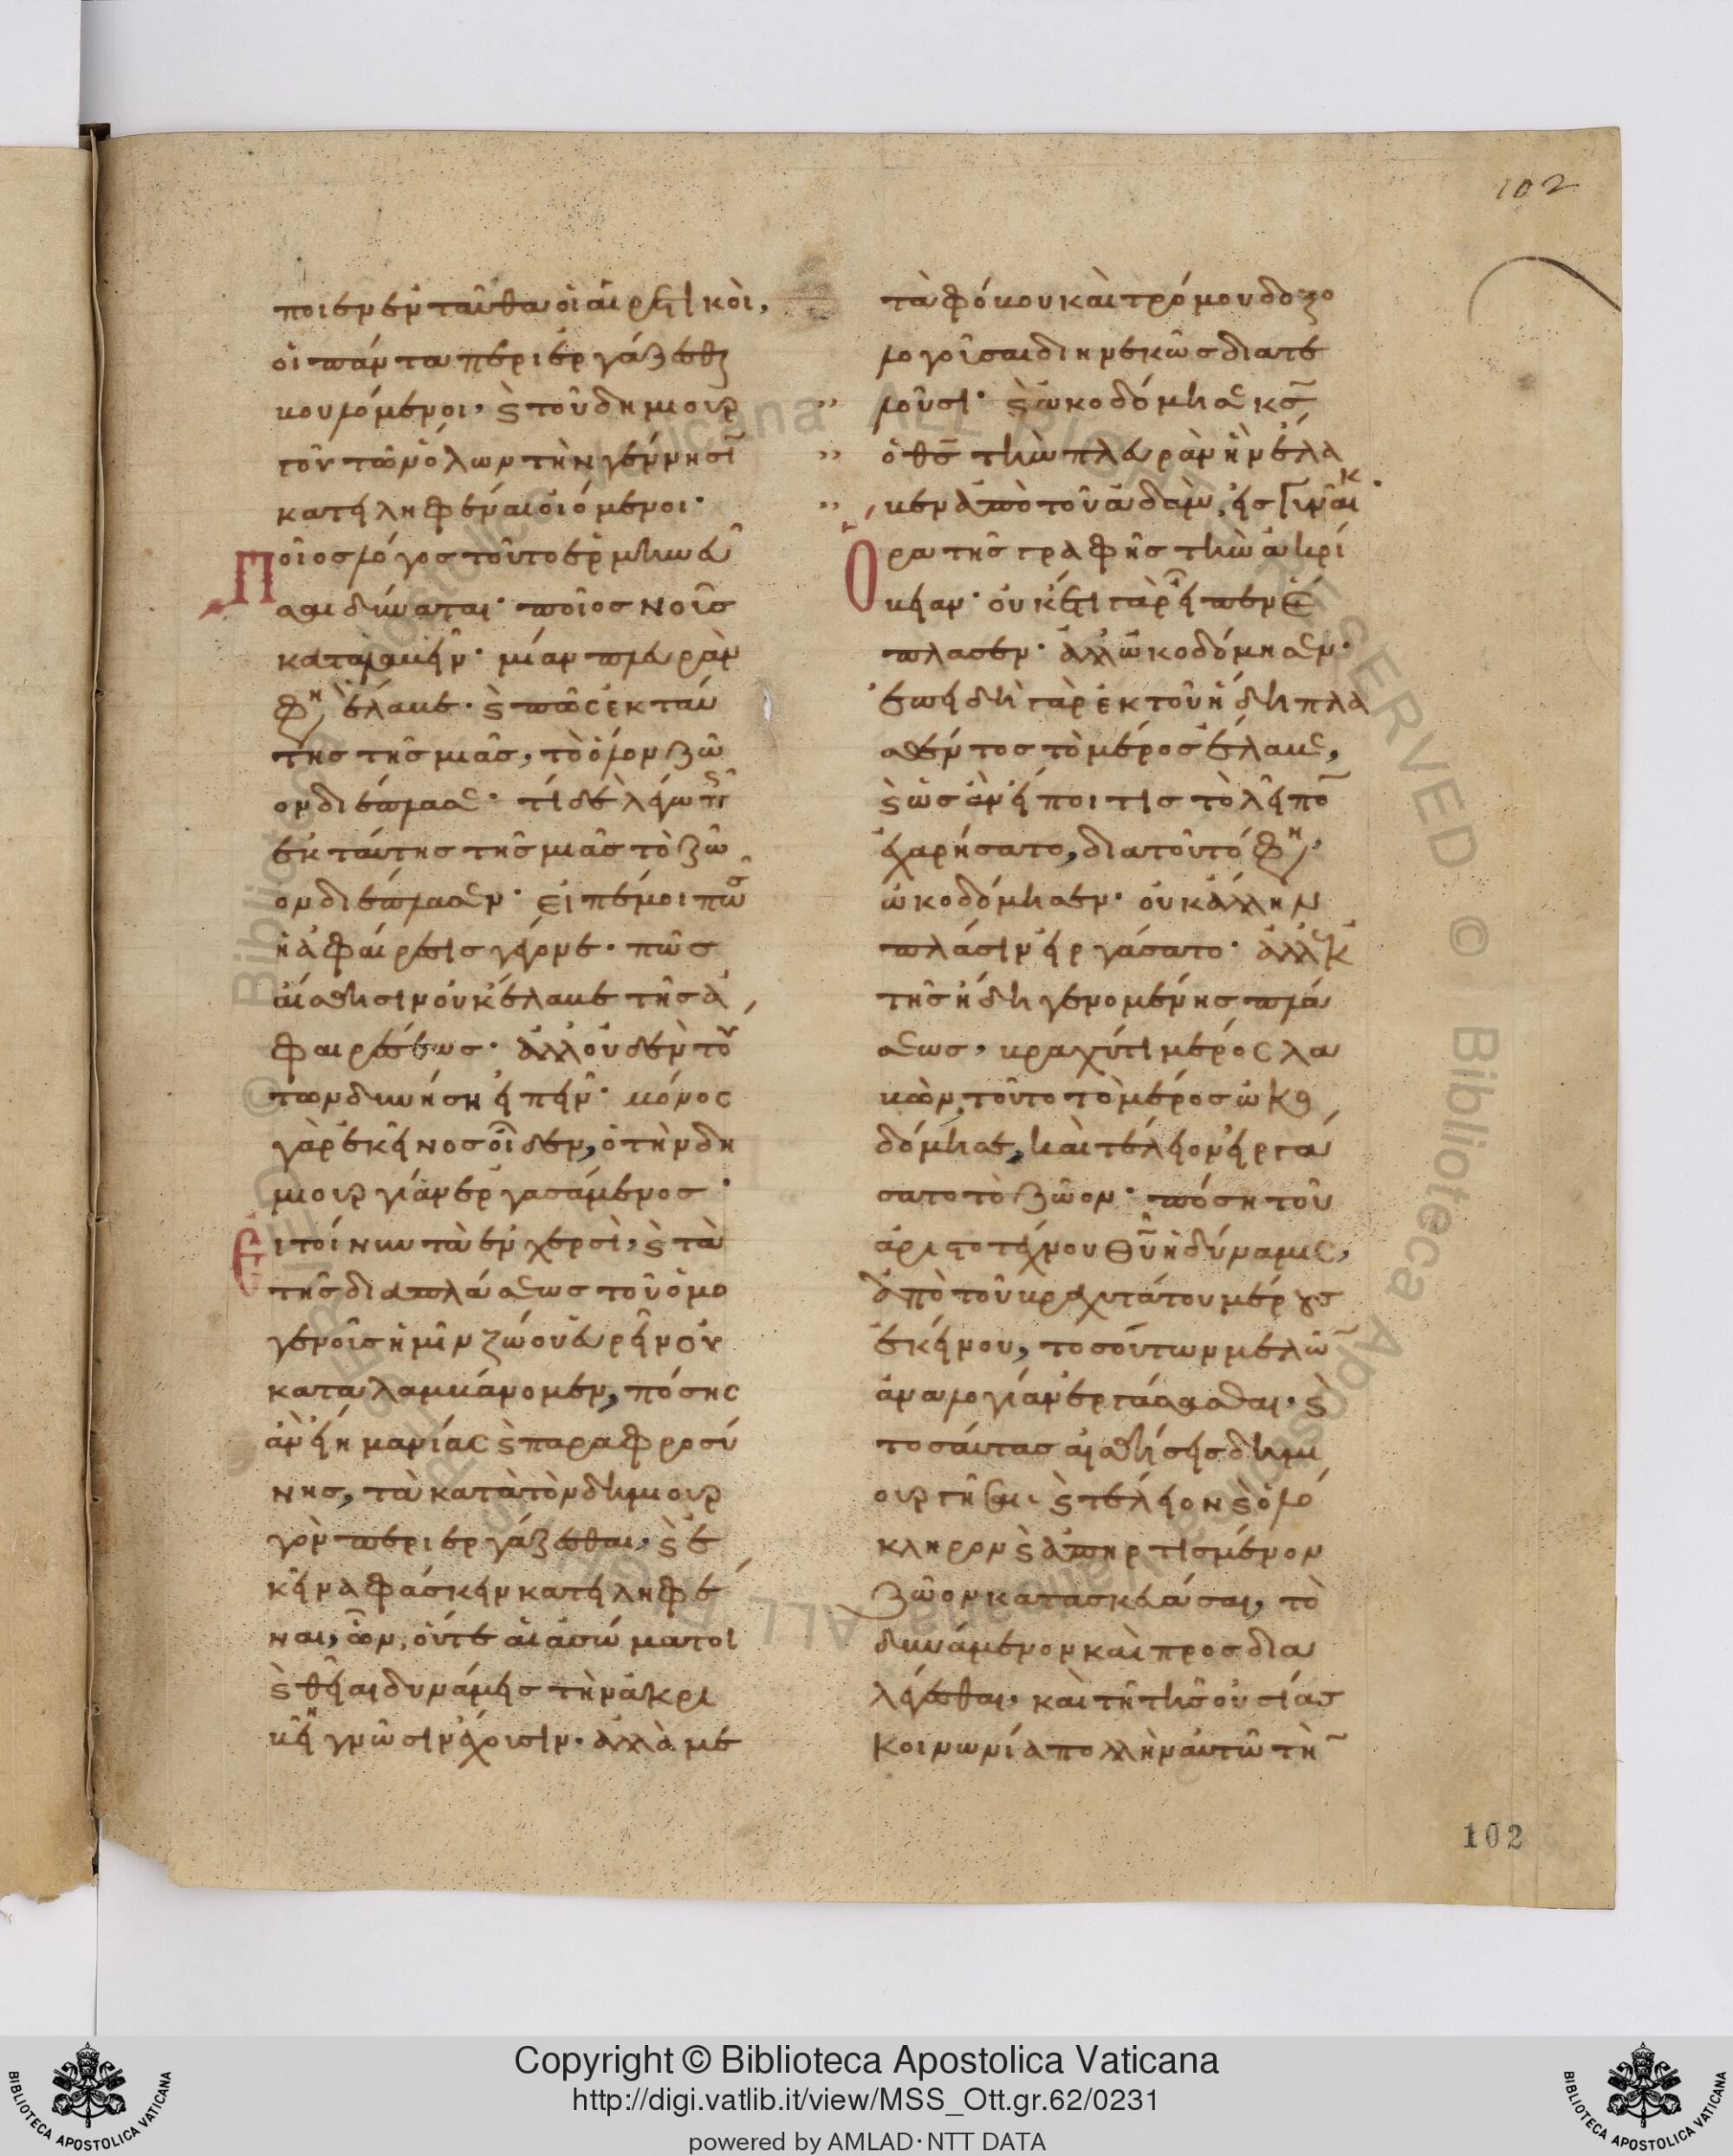 102
ποι εἰσὶν ἐνταῦθα οἱ αἱρετικοὶ,
οἱ πάντα περιεργάζεσθαι
βουλόμενοι, καὶ τοῦ δημιουρ
γοῦ τῶν ὅλων τὴν γέννησιν
κατειληφέναι οἰόμενοι·
Ποῖος λόγος τοῦτο ἑρμηνεῦ
σαι δύναται· ποῖος νοῦς
καταλαβεῖν· μίαν πλευρὰν
φησὶν ἔλαβε· καὶ πῶς ἐκ ταύ
της τῆς μιᾶς, τὸ ὅλον ζῶ
ον διέπλασε· τί δὲ λέγω πῶς
ἐκ ταύτης τῆς μιᾶς τὸ ζῶ
ον διέπλασεν· εἰπέ μοι πῶς
ἡ ἀφαίρεσις γέγονε· πῶς
αἴσθησιν οὐκ ἔλαβε τῆς ἀ
φαιρέσεως· ἀλλ' οὐδὲν τού
των δυνήσῃ εἰπεῖν· μόνος
γὰρ ἐκεῖνος οἶδεν, ὁ τὴν δη
μιουργίαν ἐργασάμενος·
Εἰ τοίνυν τὰ ἐν χερσὶ, καὶ τὰ
τῆς διαπλάσεως τοῦ ὁμο
γενοῦς ἡμῖν ζώου εὑρεῖν οὐ
καταλαμβάνομεν, πόσης
ἂν εἴη μανίας καὶ παραφροσύ
νης, τὰ κατὰ τὸν δημιουρ
γὸν περιεργάζεσθαι, καὶ ἐ
κεῖνα φάσκειν κατειληφέ
ναι, ὧν, οὔτε αἱ ἀσώματοι
καὶ θεῖαι δυνάμεις τὴν ἀκρι
βῆ γνῶσιν ἔχουσιν· ἀλλὰ με
τὰ φόβου καὶ τρόμου δοξο
λογοῦσαι διηνεκῶς διατε
λοῦσι· καὶ ὠκοδόμησε κς
ὁ θς τὴν πλευρὰν ἣν ἔλα
βεν ἀπὸ τοῦ ἀδὰμ, εἰς γυναῖκα·
Ὅρα τῆς γραφῆς τὴν ἀκρί
βειαν· οὐκέτι γὰρ εἶπεν ἔ
πλασεν· ἀλλ' ὠκοδόμησεν·
ἐπειδὴ γὰρ ἐκ τοῦ ἤδη πλα
σθέντος τὸ μέρος ἔλαβε,
καὶ ὡς ἂν εἴποι τις τὸ λεῖπον
ἐχαρήσατο, διατοῦτό φησιν
ὠκοδόμησεν· οὐκ ἄλλην
πλάσιν εἰργάσατο· ἀλλ' ἐκ
τῆς ἤδη γενομένης πλά
σεως, βραχύ τι μέρος λα
βὼν, τοῦτο τὸ μέρος ὠκο
δόμησε, καὶ τέλειον εἰργά
σατο τὸ ζῶον· πόση τοῦ
ἀριστοτέχνου θυ ἡ δύναμις,
ἀπὸ τοῦ βραχυτάτου μέρους
ἐκείνου, τοσούτων μελῶν
ἀναλογίαν ἐργάσασθαι, καὶ
τοσαύτας αἰσθήσεις δημι
ουργῆσαι καὶ τέλειον καὶ ὁλό
κληρον καὶ ἀπηρτισμένον
ζῶον κατασκευάσαι, τὸ
δυνάμενον καὶ προσδια
λέγεσθαι, καὶ τῇ τῆς οὐσίας
κοινωνίᾳ πολλὴν αὐτῶ τὴν
102
Copyright © Biblioteca Apostolica Vaticana
http://digi.vatlib.it/view/MSS_Ott.gr.62/0231
powered by AMLAD·NTT DATA